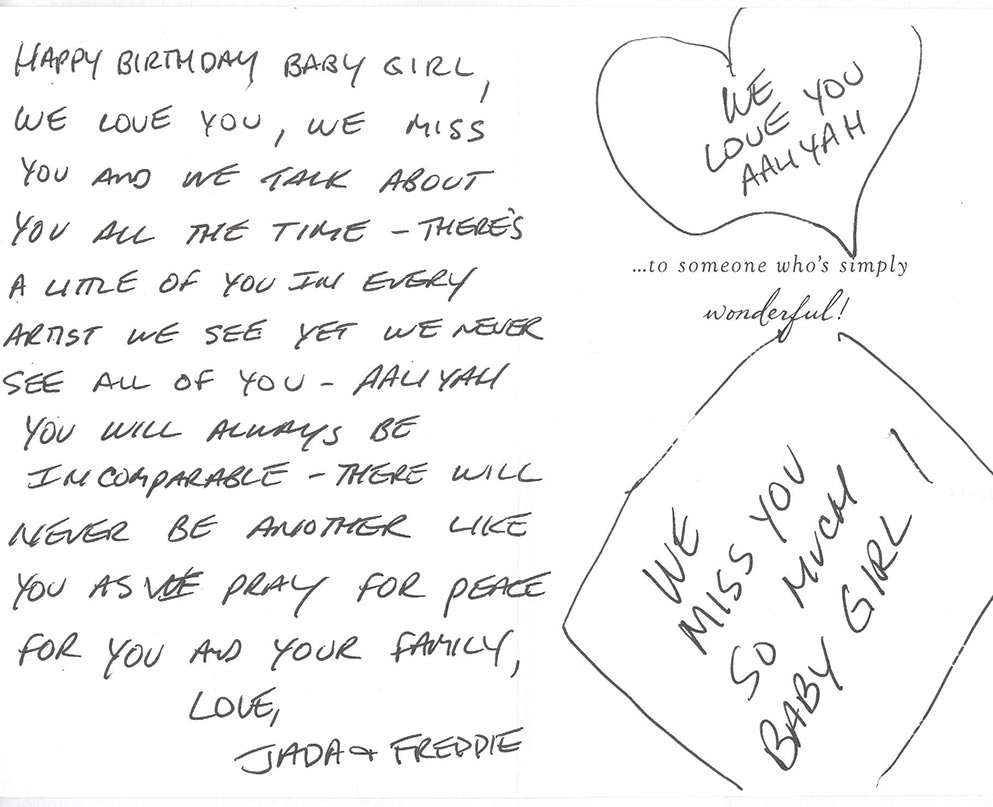 HAPPY BIRTHDAY BABY GIRL,
WE LOVE YOU, WE MISS
YOU AND WE TALK ABOUT
YOU ALL THE TIME - THERE'S
A LITTLE OF YOU IN EVERY
ARTIST WE SEE YET WE NEVER
SEE ALL OF YOU - AALIYAH
YOU WILL ALWAYS BE
INCOMPARABLE - THERE WILL
NEVER BE ANOTHER LIKE
YOU AS WE PRAY FOR PEACE
FOR YOU AND YOUR FAMILY,
LOVE,
JADA & FREDDIE
WE
LOVE YOU
AALIYAH
...to someone who's simply
wonderful!
WE
MISS YOU
SO MUCH
BABY GIRL !